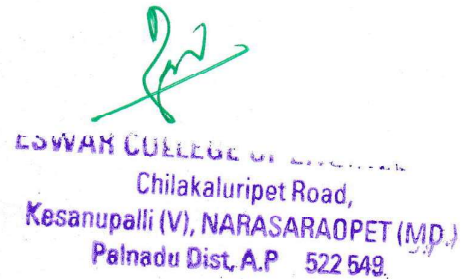 ESWAR COLLEGE OF
Chilakaluripet Road,
Kesanupalli (V), NARASARAOPET (MD.)
Palnadu Dist, A.P 522 549.